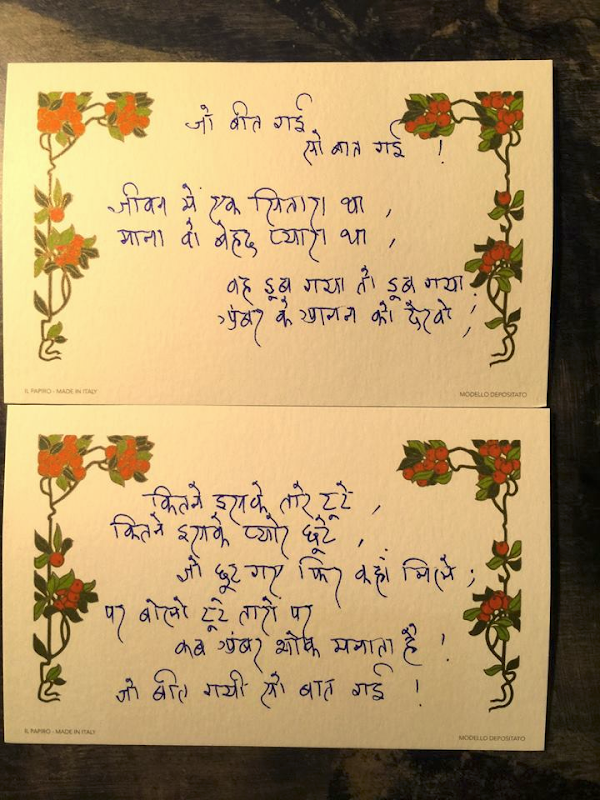 जो बीत गई
सो बात गई !
जीवन में एक सितारा था ,
माना वो बेहद प्यारा था ,
वह डूब गया तो डूब गया ;
अंबर के आनन को देखो ;
IL PAPIRO - MADE IN ITALY
MODELLO DEPOSITATO
कितने इसके तारे टूटे ,
कितने इसके प्यारे छूटे ,
जो छूट गए फिर कहाँ मिले ;
पर बोलो टूटे तारों पर
कब अंबर शोक मनाता है !
जो बीत गयी सो बात गई !
IL PAPIRO - MADE IN ITALY
MODELLO DEPOSITATO